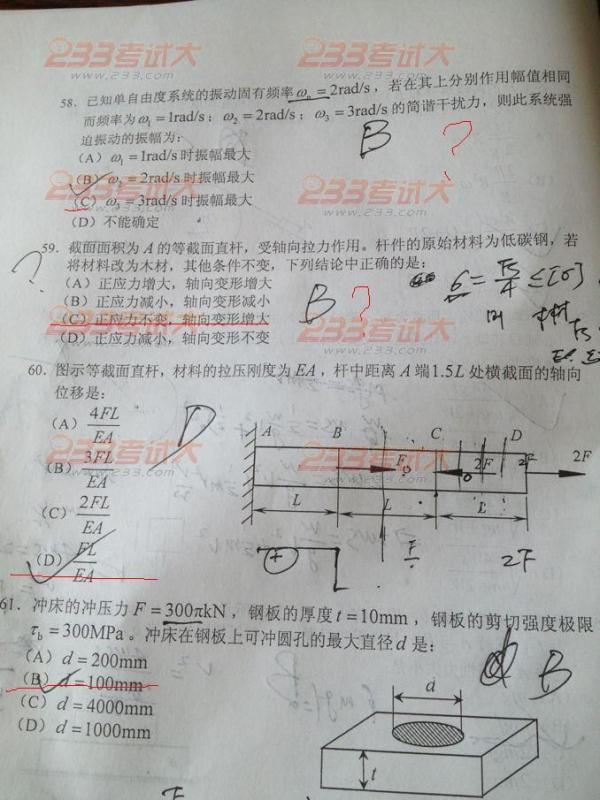 233考试大 233考试大
www.233.com www.233.com
58. 已知单自由度系统的振动固有频率ωₙ=2rad/s，若在其上分别作用幅值相同
而频率为ω₁=1rad/s；ω₂=2rad/s；ω₃=3rad/s的简谐干扰力，则此系统强
迫振动的振幅为：
B ?
(A) ω₁=1rad/s时振幅最大
(B) ω₂=2rad/s时振幅最大
(C) ω₃=3rad/s时振幅最大
(D) 不能确定
233考试大 233考试大
www.233.com www.233.com
? 59. 截面面积为A的等截面直杆，受轴向拉力作用。杆件的原始材料为低碳钢，若
将材料改为木材，其他条件不变，下列结论中正确的是：
(A) 正应力增大，轴向变形增大
(B) 正应力减小，轴向变形减小
(C) 正应力不变，轴向变形增大
(D) 正应力减小，轴向变形不变
B ?
σ = Fs/A ≤ [σ]
233考试大 233考试大
www.233.com www.233.com
60. 图示等截面直杆，材料的拉压刚度为EA，杆中距离A端1.5L处横截面的轴向
位移是：
(A) 4FL/EA
(B) 3FL/EA
(C) 2FL/EA
(D) FL/EA
D
A B C D
F 2F 2F 2F
L L L
+ F 2F
233考试大 233考试大
www.233.com www.233.com
61. 冲床的冲压力F=300πkN，钢板的厚度t=10mm，钢板的剪切强度极限
τb=300MPa。冲床在钢板上可冲圆孔的最大直径d是：
(A) d=200mm
(B) d=100mm
(C) d=4000mm
(D) d=1000mm
B
d
t